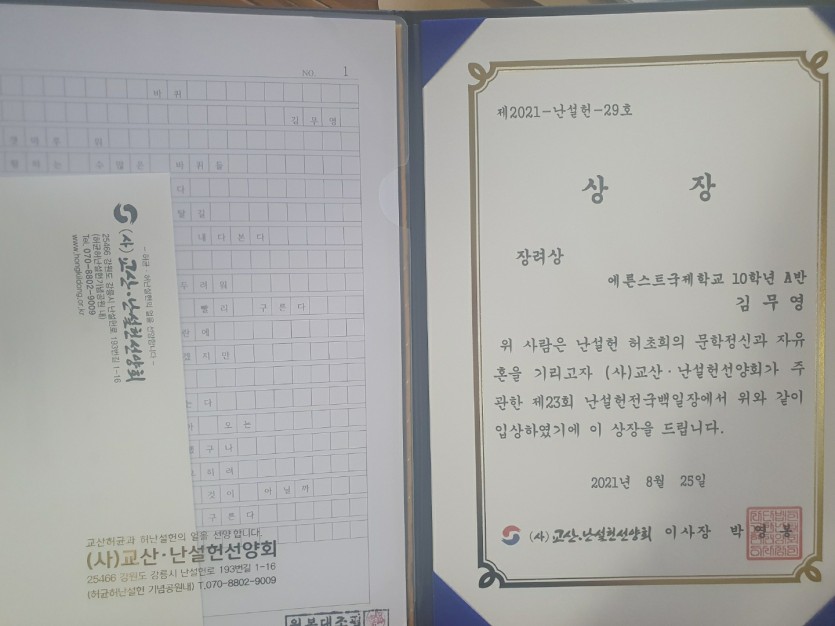 NO. 1
바 위
김 무 영
수 많 은 바 위 들
다
달 길
내 다 본 다
두 려 워
빨 리 구 른 다
란 에
겠 지 만
는 다
모 는
렇 구 나
것 이 아 닐 까
구 른 다
- 허균·허난설헌의 얼을 선양합니다 -
(사)교산·난설헌선양회
25466 강원도 강릉시 난설헌로 193번길 1-16
(허균허난설헌기념공원 내)
Tel. 070-8802-9009
www.hongkildong.or.kr
교산허균과 허난설헌의 얼을 선양합니다.
(사)교산·난설헌선양회
25466 강원도 강릉시 난설헌로 193번길 1-16
(허균허난설헌 기념공원내) T.070-8802-9009
원본대조필
제2021-난설헌-29호
상 장
장려상
에른스트국제학교 10학년 A반
김 무 영
위 사람은 난설헌 허초희의 문학정신과 자유
혼을 기리고자 (사)교산·난설헌선양회가 주
관한 제23회 난설헌전국백일장에서 위와 같이
입상하였기에 이 상장을 드립니다.
2021년 8월 25일
(사)교산·난설헌선양회 이사장 박 영 봉